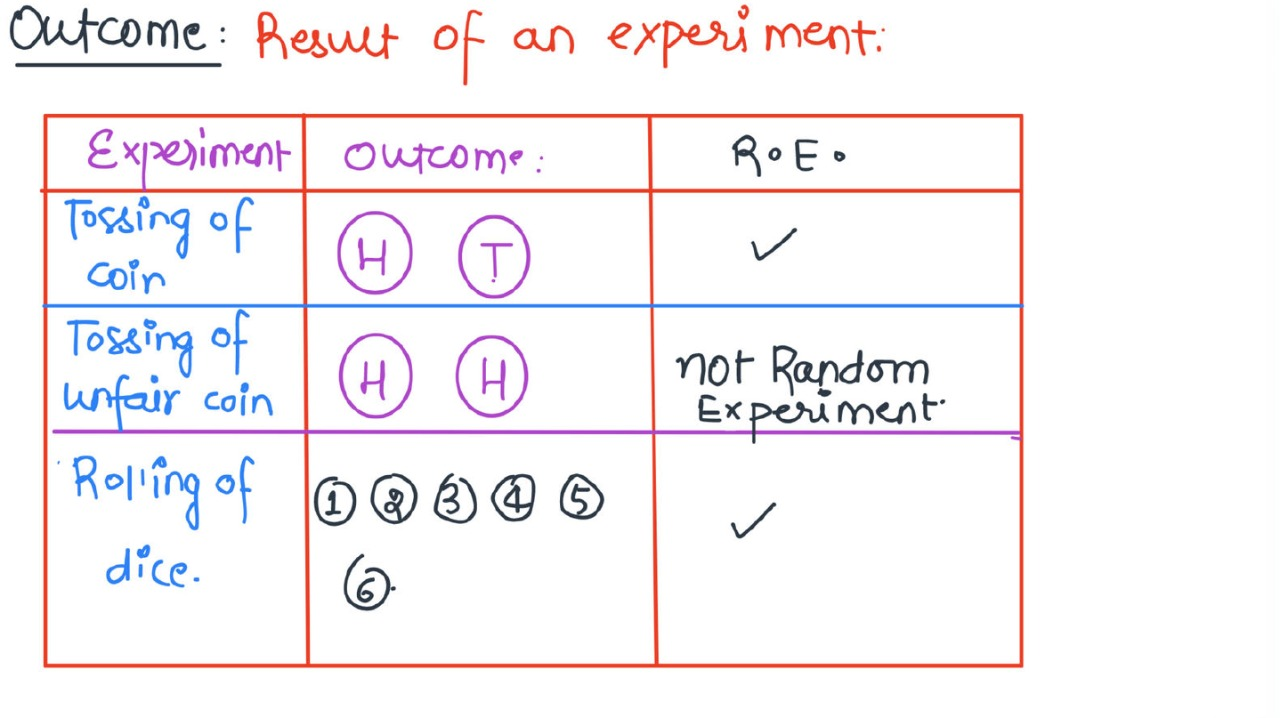 Outcome: Result of an experiment:
Experiment Outcome: R.E.
Tossing of
coin
H T ✓
Tossing of
unfair coin
H H
not Random
Experiment.
Rolling of
dice.
1 2 3 4 5
6.
✓